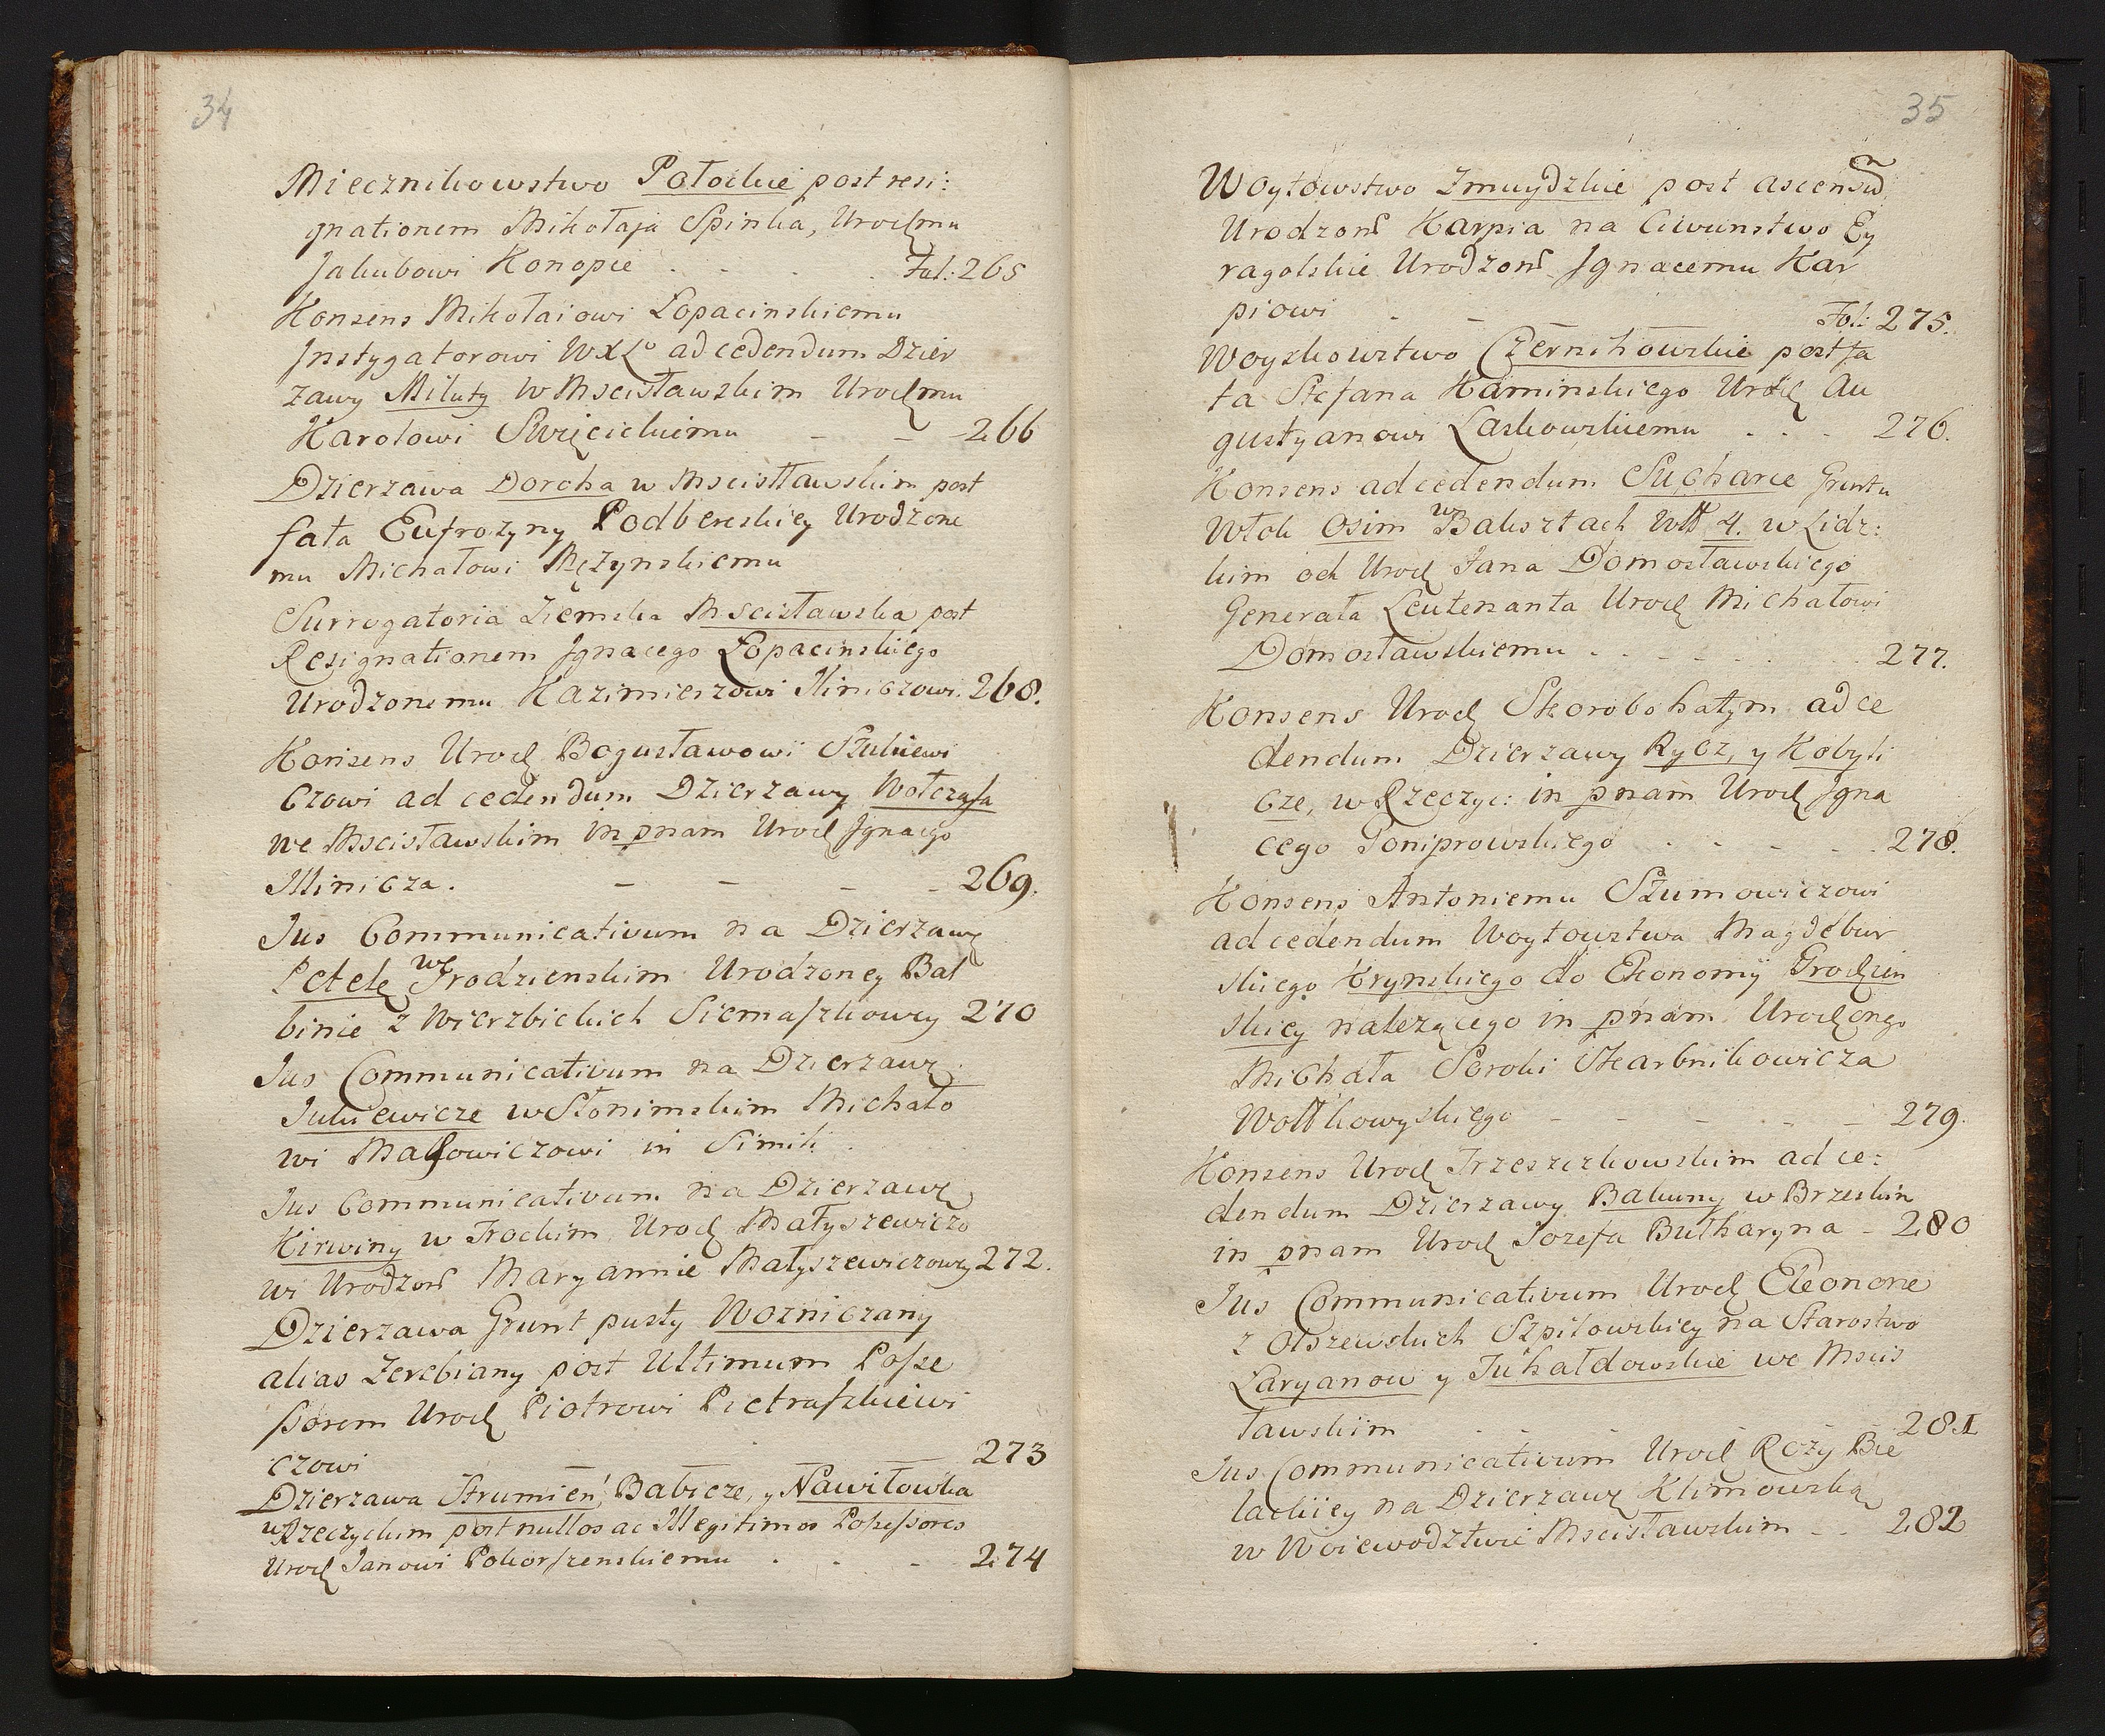 34
Miecznikowstwo Połockie post resi:
gnationem Mikołaja Spinka, Urodzmu
Jakubowi Konopce . . . . Fol: 265
Konsens Mikołaiowi Łopacinskiemu
Jnstygatorowi WXLo ad cedendum Dzier
zawy Miluty w Mscisławskim Urodzmu
Karolowi Swięcickiemu - - 266
Dzierzawa Doroha w Mscisławskim post
fata Eufrozyny Podbereskiey Urodzone
mu Michałowi Mężynskiemu
Surrogatoria Ziemska Mscisławska post
Resignationem Jgnacego Łopacinskiego
Urodzonemu Kazimierzowi Jliniczowi. 268.
Konsens Urodz Bogusławowi Szukiewi
czowi ad cedendum Dzierzawy Wołczasa
we Mscisławskim in pnam Urodz Jgnacego
Jllinicza. - - - - 269.
Jus Communicativum na Dzierzawę
Petelę w Grodzienskim Urodzoney Bal
binie z Wierzbickich Siemaszkowey 270
Jus Communicativum na Dzierzawę
Jutkiewicze w Słonimskim Michało
wi Makowiczowi in Simili . . .
Jus Communicativum na Dzierzawę
Kirwiny w Trockim Urodz Małyszewiczo
wi Urodzon Maryannie Małyszewiczowey 272.
Dzierzawa Grunt pusty Wozniczany
alias Zerebiany post Ultimum Posse
ssorem Urodz Piotrowi Pietraszkiewi
czowi 273
Dzierzawa Strumień, Babicze, y Nawiłowka
w Rzeczyckim post nullos ac Jllegitimos Possessores
Urodz Janowi Pokorszenskiemu . . - 274
35
Woytowstwo Zmuydzkie post ascensum
Urodzon Karpia na Ciwunstwo Ey
ragolskie Urodzon Jgnacemu Kar
piowi - - Fol: 275.
Woyskowstwo Czernihowskie post fa
ta Stefana Kaminskiego Urodz Au
gustyanowi Laskowskiemu . . - 276.
Konsens ad cedendum Sucharce Gruntu
Włok Osim w Baksztach Włł 4. w Lidz:
kim od Urodz Jana Domosławskiego
Generała Leutenanta Urodz Michałowi
Domosławskiemu . . - - . . . 277.
Konsens Urodz Skorobohatym ad ce
dendum Dzierzawy Rycz, y Kobyli
cze, w Rzeczyc: in pnam Urodz Jgna
cego Goniprowskiego . . - - . 278.
Konsens Antoniemu Szumowiczowi
ad cedendum Woytowstwa Magdebur
skiego Krynskiego do Ekonomij Grodzin
skiey należącego in pnam Urodzongo
Michała Soroki Skarbnikowicza
Wołłkowyskiego - - - - - - 279.
Konsens Urodz Trzeszczkowskim ad ce:
dendum Dzierzawy Bakuny w Brzeskim
in pnam Urodz Jozefa Bułharyna - 280
Jus Communicativum Urodz Eleonorze
z Olszewskich Szpilowskiey na Starostwo
Laryanow y Juhałdowskie we Mscis
ławskim . - - - 281
Jus Communicativum Urodz Roży Bie
lackiey na Dzierzawę Klimowską
w Woiewodztwie Mscisławskim - . 282